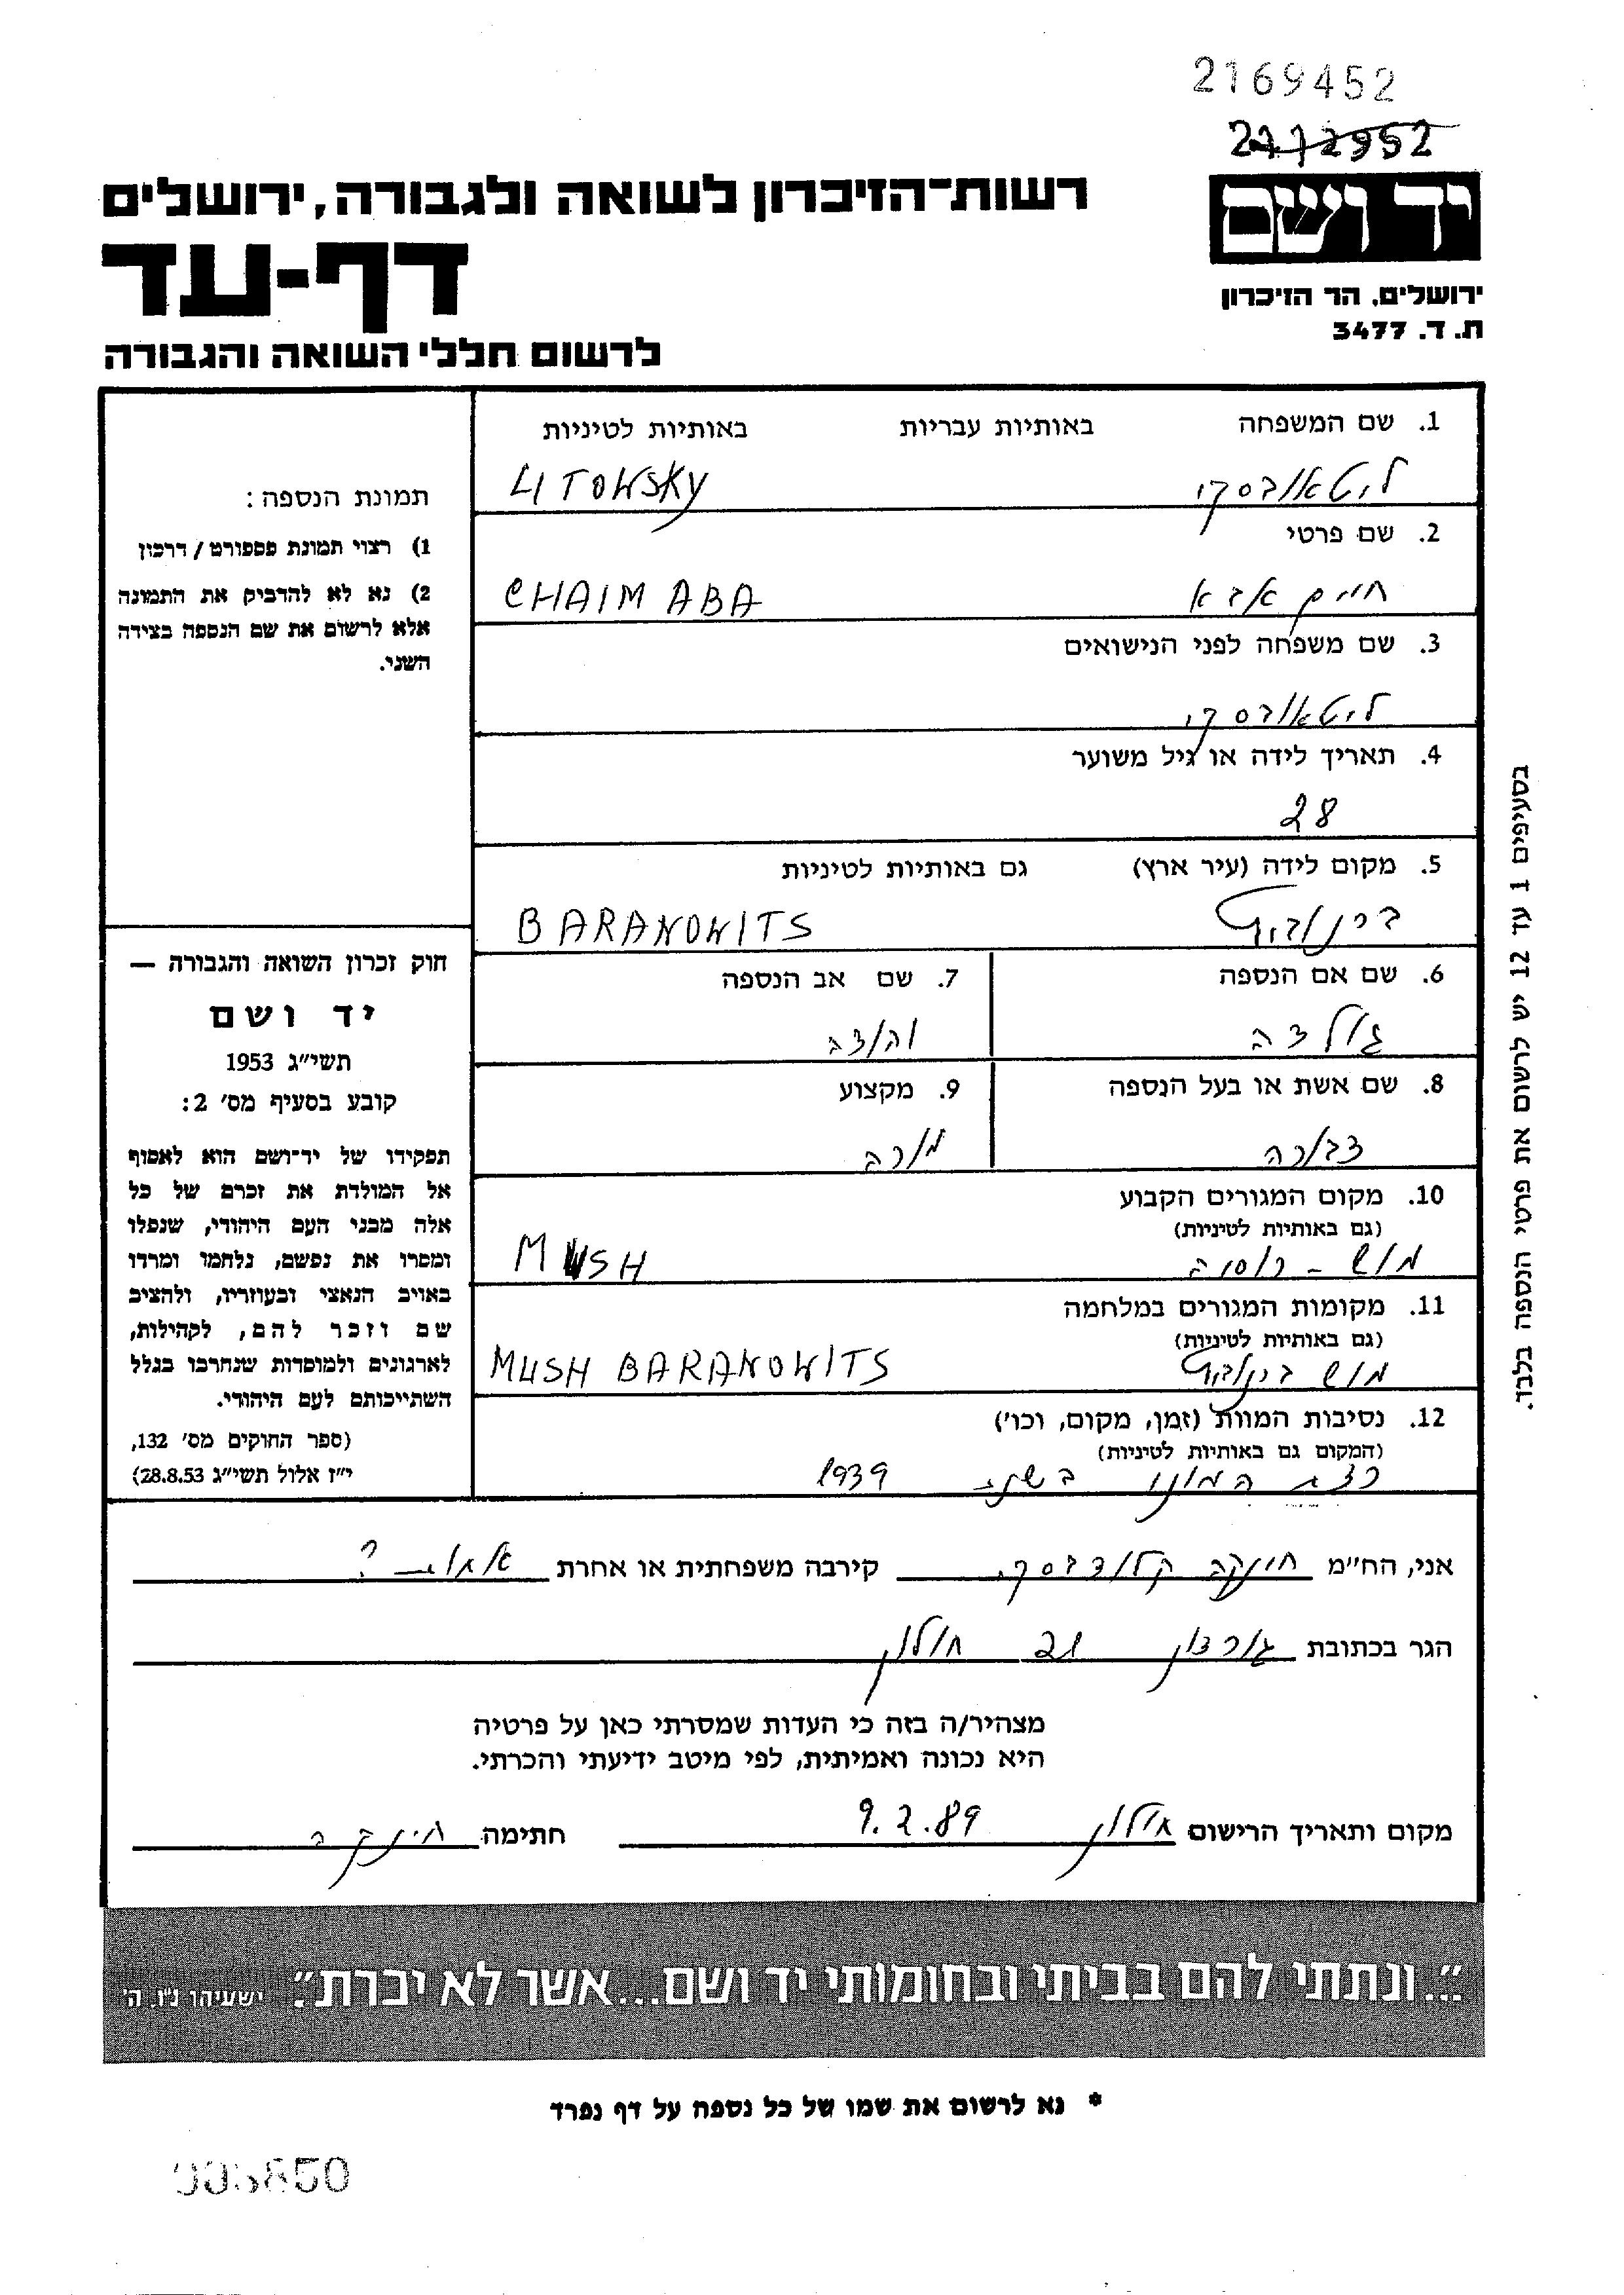 2169452
2172952
יד ושם
רשות־הזיכרון לשואה ולגבורה, ירושלים
דף-עד
ירושלים, הר הזיכרון
ת. ד. 3477
לרשום חללי השואה והגבורה
1. שם המשפחה באותיות עבריות באותיות לטיניות
ליטאובסקי LITOWSKY
2. שם פרטי
חיים אבא CHAIM ABA
3. שם משפחה לפני הנישואים
ליטאובסקי
4. תאריך לידה או גיל משוער
28
5. מקום לידה (עיר ארץ) גם באותיות לטיניות
BARANOWITS
6. שם אם הנספה 7. שם אב הנספה
גולדה
8. שם אשת או בעל הנספה 9. מקצוע
דבורה מורה
10. מקום המגורים הקבוע
(גם באותיות לטיניות)
מוש - רוסיה MUSH
11. מקומות המגורים במלחמה
(גם באותיות לטיניות)
מוש MUSH BARANOWITS
12. נסיבות המוות (זמן, מקום, וכו')
(המקום גם באותיות לטיניות)
רצח המוני בשנת 1939
תמונת הנספה:
1) רצוי תמונת פספורט / דרכון
2) נא לא להדביק את התמונה
אלא לרשום את שם הנספה בצידה
השני.
חוק זכרון השואה והגבורה —
יד ושם
תשי״ג 1953
קובע בסעיף מס׳ 2:
תפקידו של יד־ושם הוא לאסוף
אל המולדת את זכרם של כל
אלה מבני העם היהודי, שנפלו
ומסרו את נפשם, נלחמו ומרדו
באויב הנאצי ובעוזריו, ולהציב
שם וזכר להם, לקהילות,
לארגונים ולמוסדות שנחרבו בגלל
השתייכותם לעם היהודי.
(ספר החוקים מס׳ 132,
י״ז אלול תשי״ג 28.8.53)
בסעיפים 1 עד 12 יש לרשום את פרטי הנספה בלבד.
אני, הח״מ קירבה משפחתית או אחרת ?
הגר בכתובת גורדון חולון
מצהיר/ה בזה כי העדות שמסרתי כאן על פרטיה
היא נכונה ואמיתית, לפי מיטב ידיעתי והכרתי.
מקום ותאריך הרישום חולון 9.2.89 חתימה
״...ונתתי להם בביתי ובחומותי יד ושם...אשר לא יכרת״. ישעיהו נ״ו, ה׳
* נא לרשום את שמו של כל נספה על דף נפרד